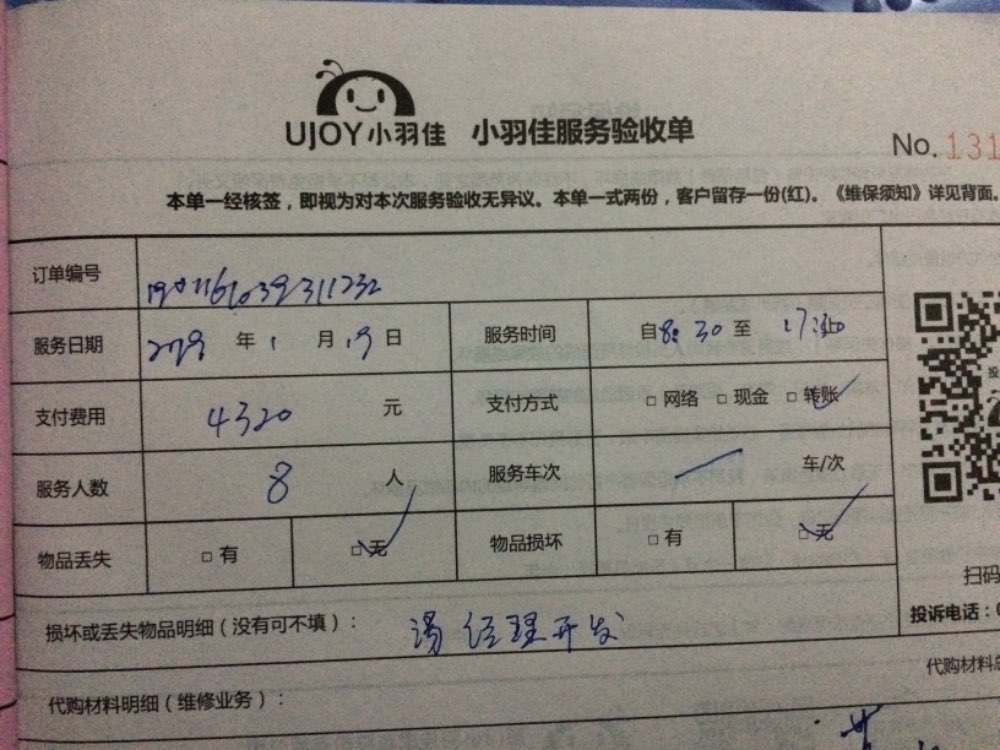 UJOY小羽佳 小羽佳服务验收单
No. 131
本单一经核签，即视为对本次服务验收无异议。本单一式两份，客户留存一份(红)。《维保须知》详见背面。
订单编号
服务日期 2019 年 1 月 19 日 服务时间 自8:30 至
支付费用 4320 元 支付方式 □ 网络 □ 现金 □ 转账
服务人数 8 人 服务车次 车/次
物品丢失 □ 有 □ 无 物品损坏 □ 有 □ 无
扫码
投诉电话：0
损坏或丢失物品明细（没有可不填）： 汤经理开发
代购材料明细（维修业务）：
代购材料总